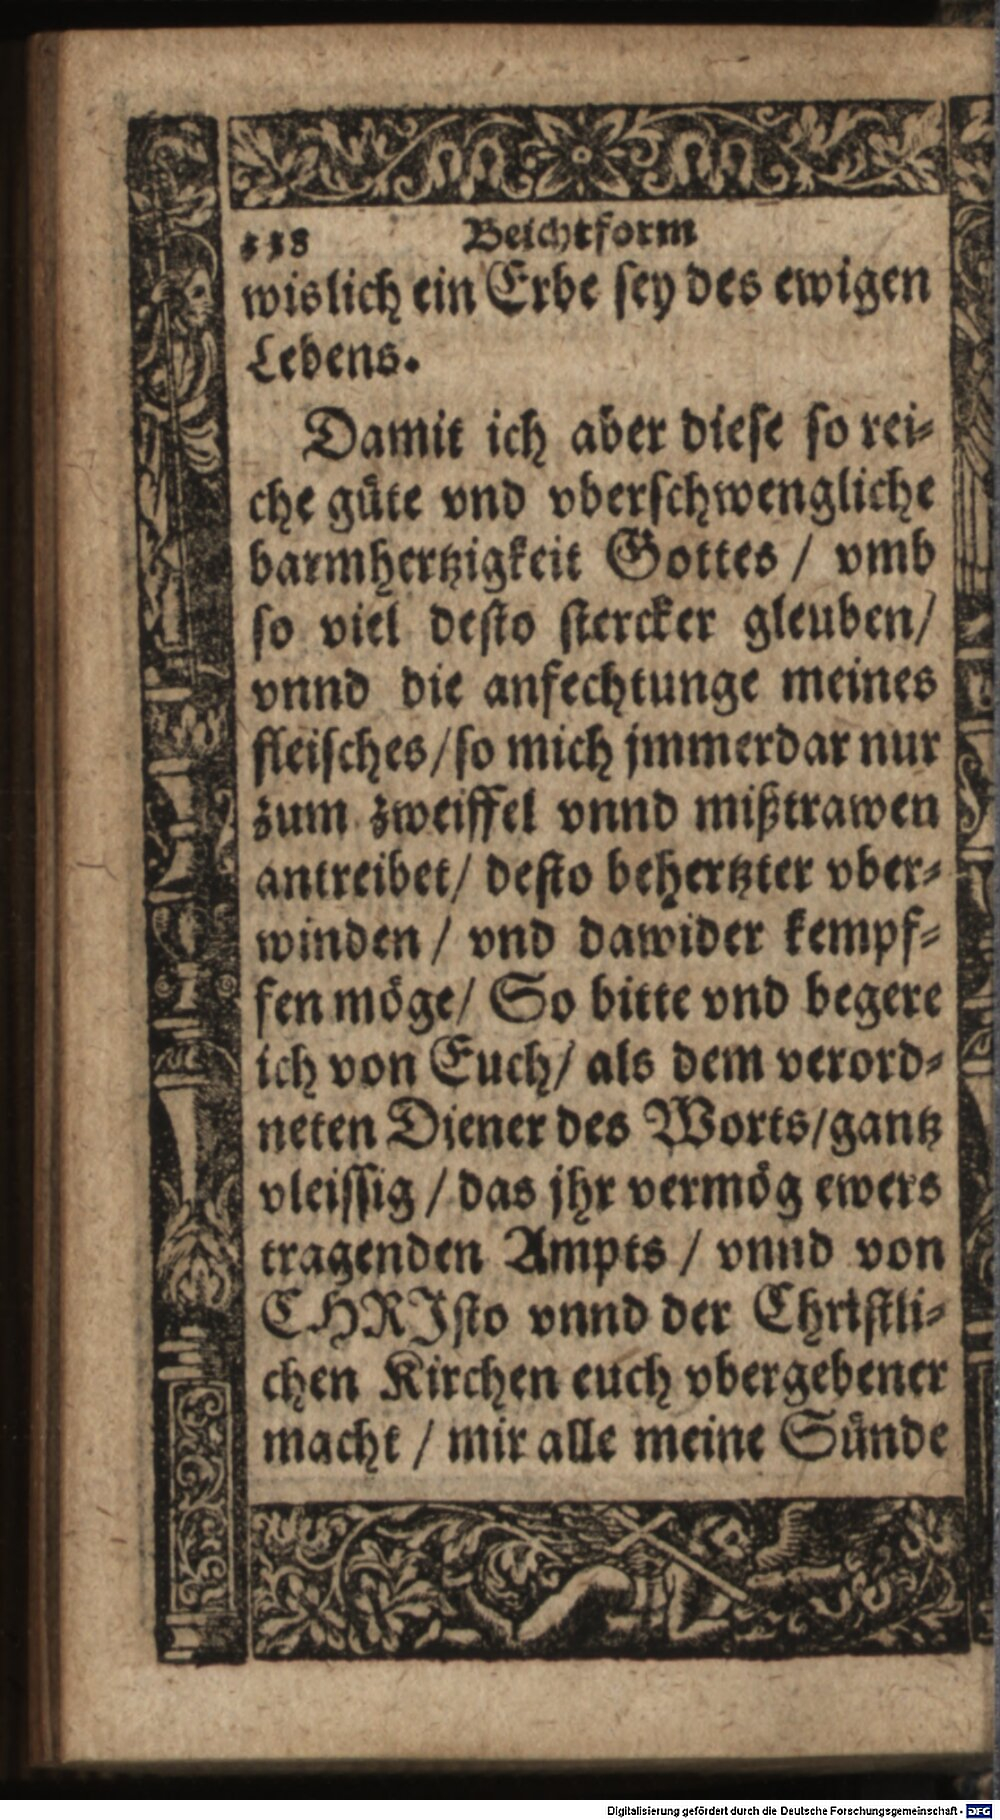 558 Beichtform
wislich ein Erbe sey des ewigen
Lebens.
Damit ich aber diese so rei⸗
che güte vnd vberschwengliche
barmhertzigkeit Gottes / vmb
so viel desto stercker gleuben/
vnnd die anfechtunge meines
fleisches/so mich jmmerdar nur
zum zweiffel vnnd mißtrawen
antreibet/ desto behertzter vber⸗
winden / vnd dawider kempf⸗
fen möge/ So bitte vnd begere
ich von Euch/ als dem verord⸗
neten Diener des Worts/gantz
vleissig / das jhr vermög ewers
tragenden Ampts / vnnd von
CHRIsto vnnd der Christli⸗
chen Kirchen euch vbergebener
macht / mir alle meine Sünde
Digitalisierung gefördert durch die Deutsche Forschungsgemeinschaft - DFG